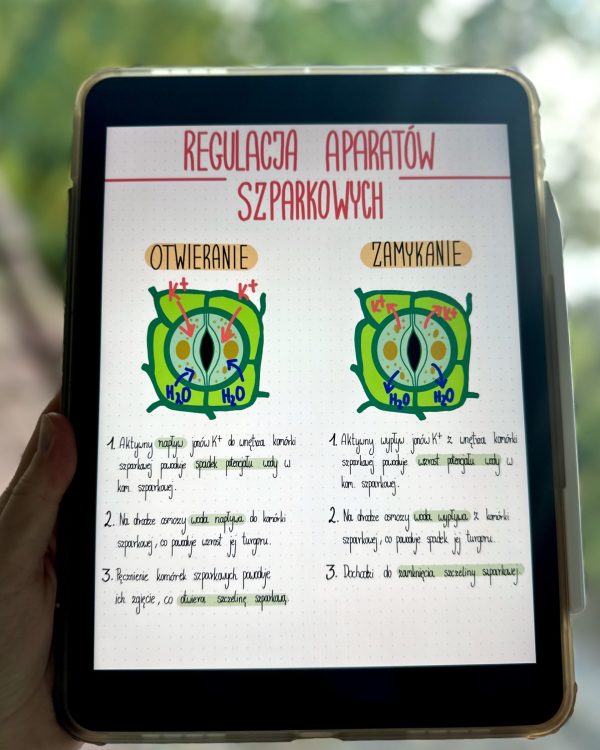 REGULACJA APARATÓW
SZPARKOWYCH
OTWIERANIE
K+ K+
H2O H2O
1. Aktywny napływ jonów K+ do wnętrza komórki
szparkowej powoduje spadek potencjału wody w
kom. szparkowej.
2. Na drodze osmozy woda napływa do komórki
szparkowej, co powoduje wzrost jej turgoru.
3. Pęcznienie komórek szparkowych powoduje
ich zgięcie, co otwiera szczelinę szparkową.
ZAMYKANIE
K+ K+
H2O H2O
1. Aktywny wypływ jonów K+ z wnętrza komórki
szparkowej powoduje wzrost potencjału wody w
kom. szparkowej.
2. Na drodze osmozy woda wypływa z komórki
szparkowej, co powoduje spadek jej turgoru.
3. Dochodzi do zamknięcia szczeliny szparkowej.